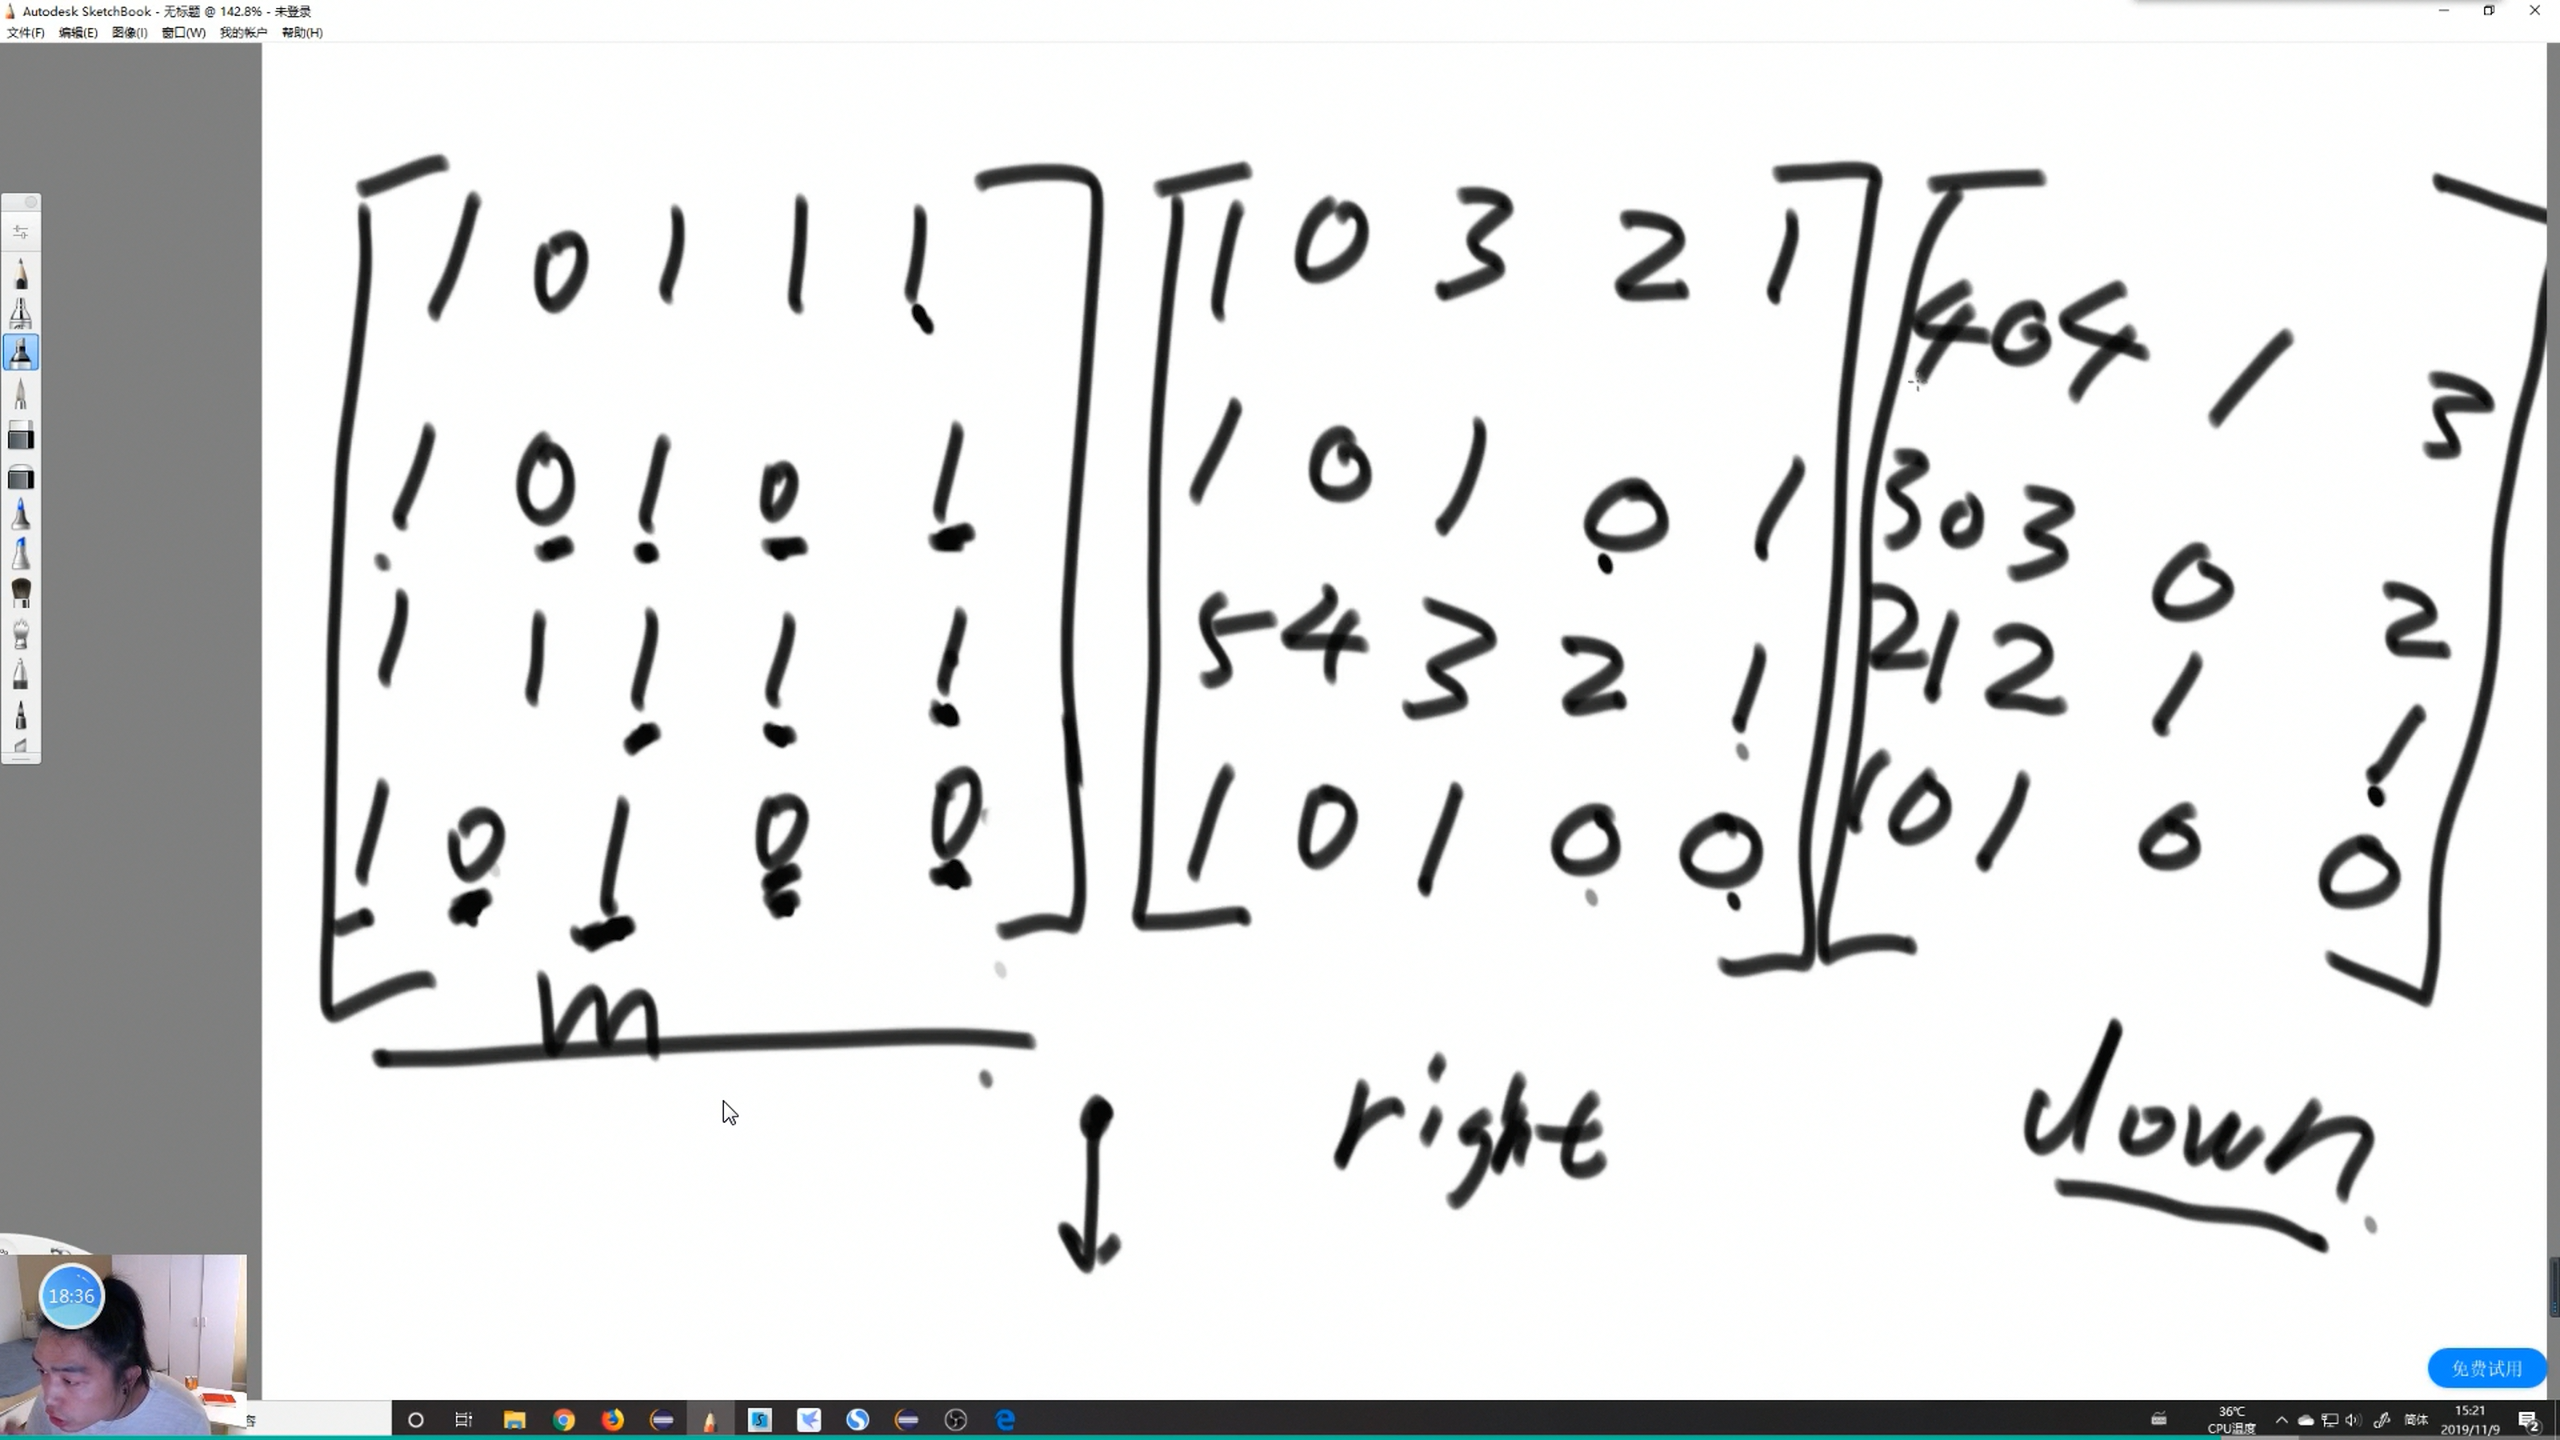 Autodesk SketchBook - 无标题 @ 142.8% - 未登录
文件(F) 编辑(E) 图像(I) 窗口(W) 我的帐户 帮助(H)
1 0 1 1 1
1 0 1 0 1
1 1 1 1 1
1 0 1 0 0
m
1 0 3 2 1
1 0 1 0 1
5 4 3 2 1
1 0 1 0 0
right
4 0 4 1 3
3 0 3 0 2
2 1 2 1 1
1 0 1 0 0
down
18:36
免费试用
容
36℃
CPU温度
简体
15:21
2019/11/9
2